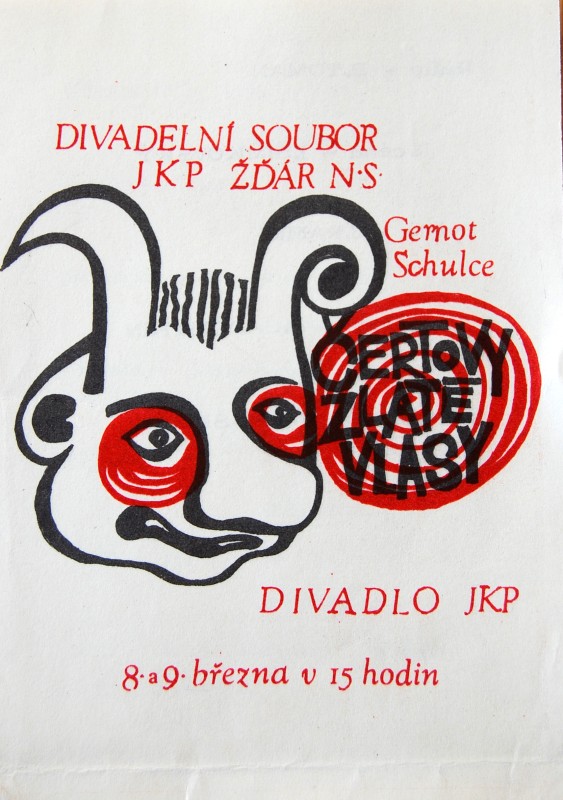 DIVADELNÍ SOUBOR
JKP ŽĎÁR N·S·
Gernot
Schulce
ČERTOVY
ZLATÉ
VLASY
DIVADLO JKP
8·a9· března v 15 hodin